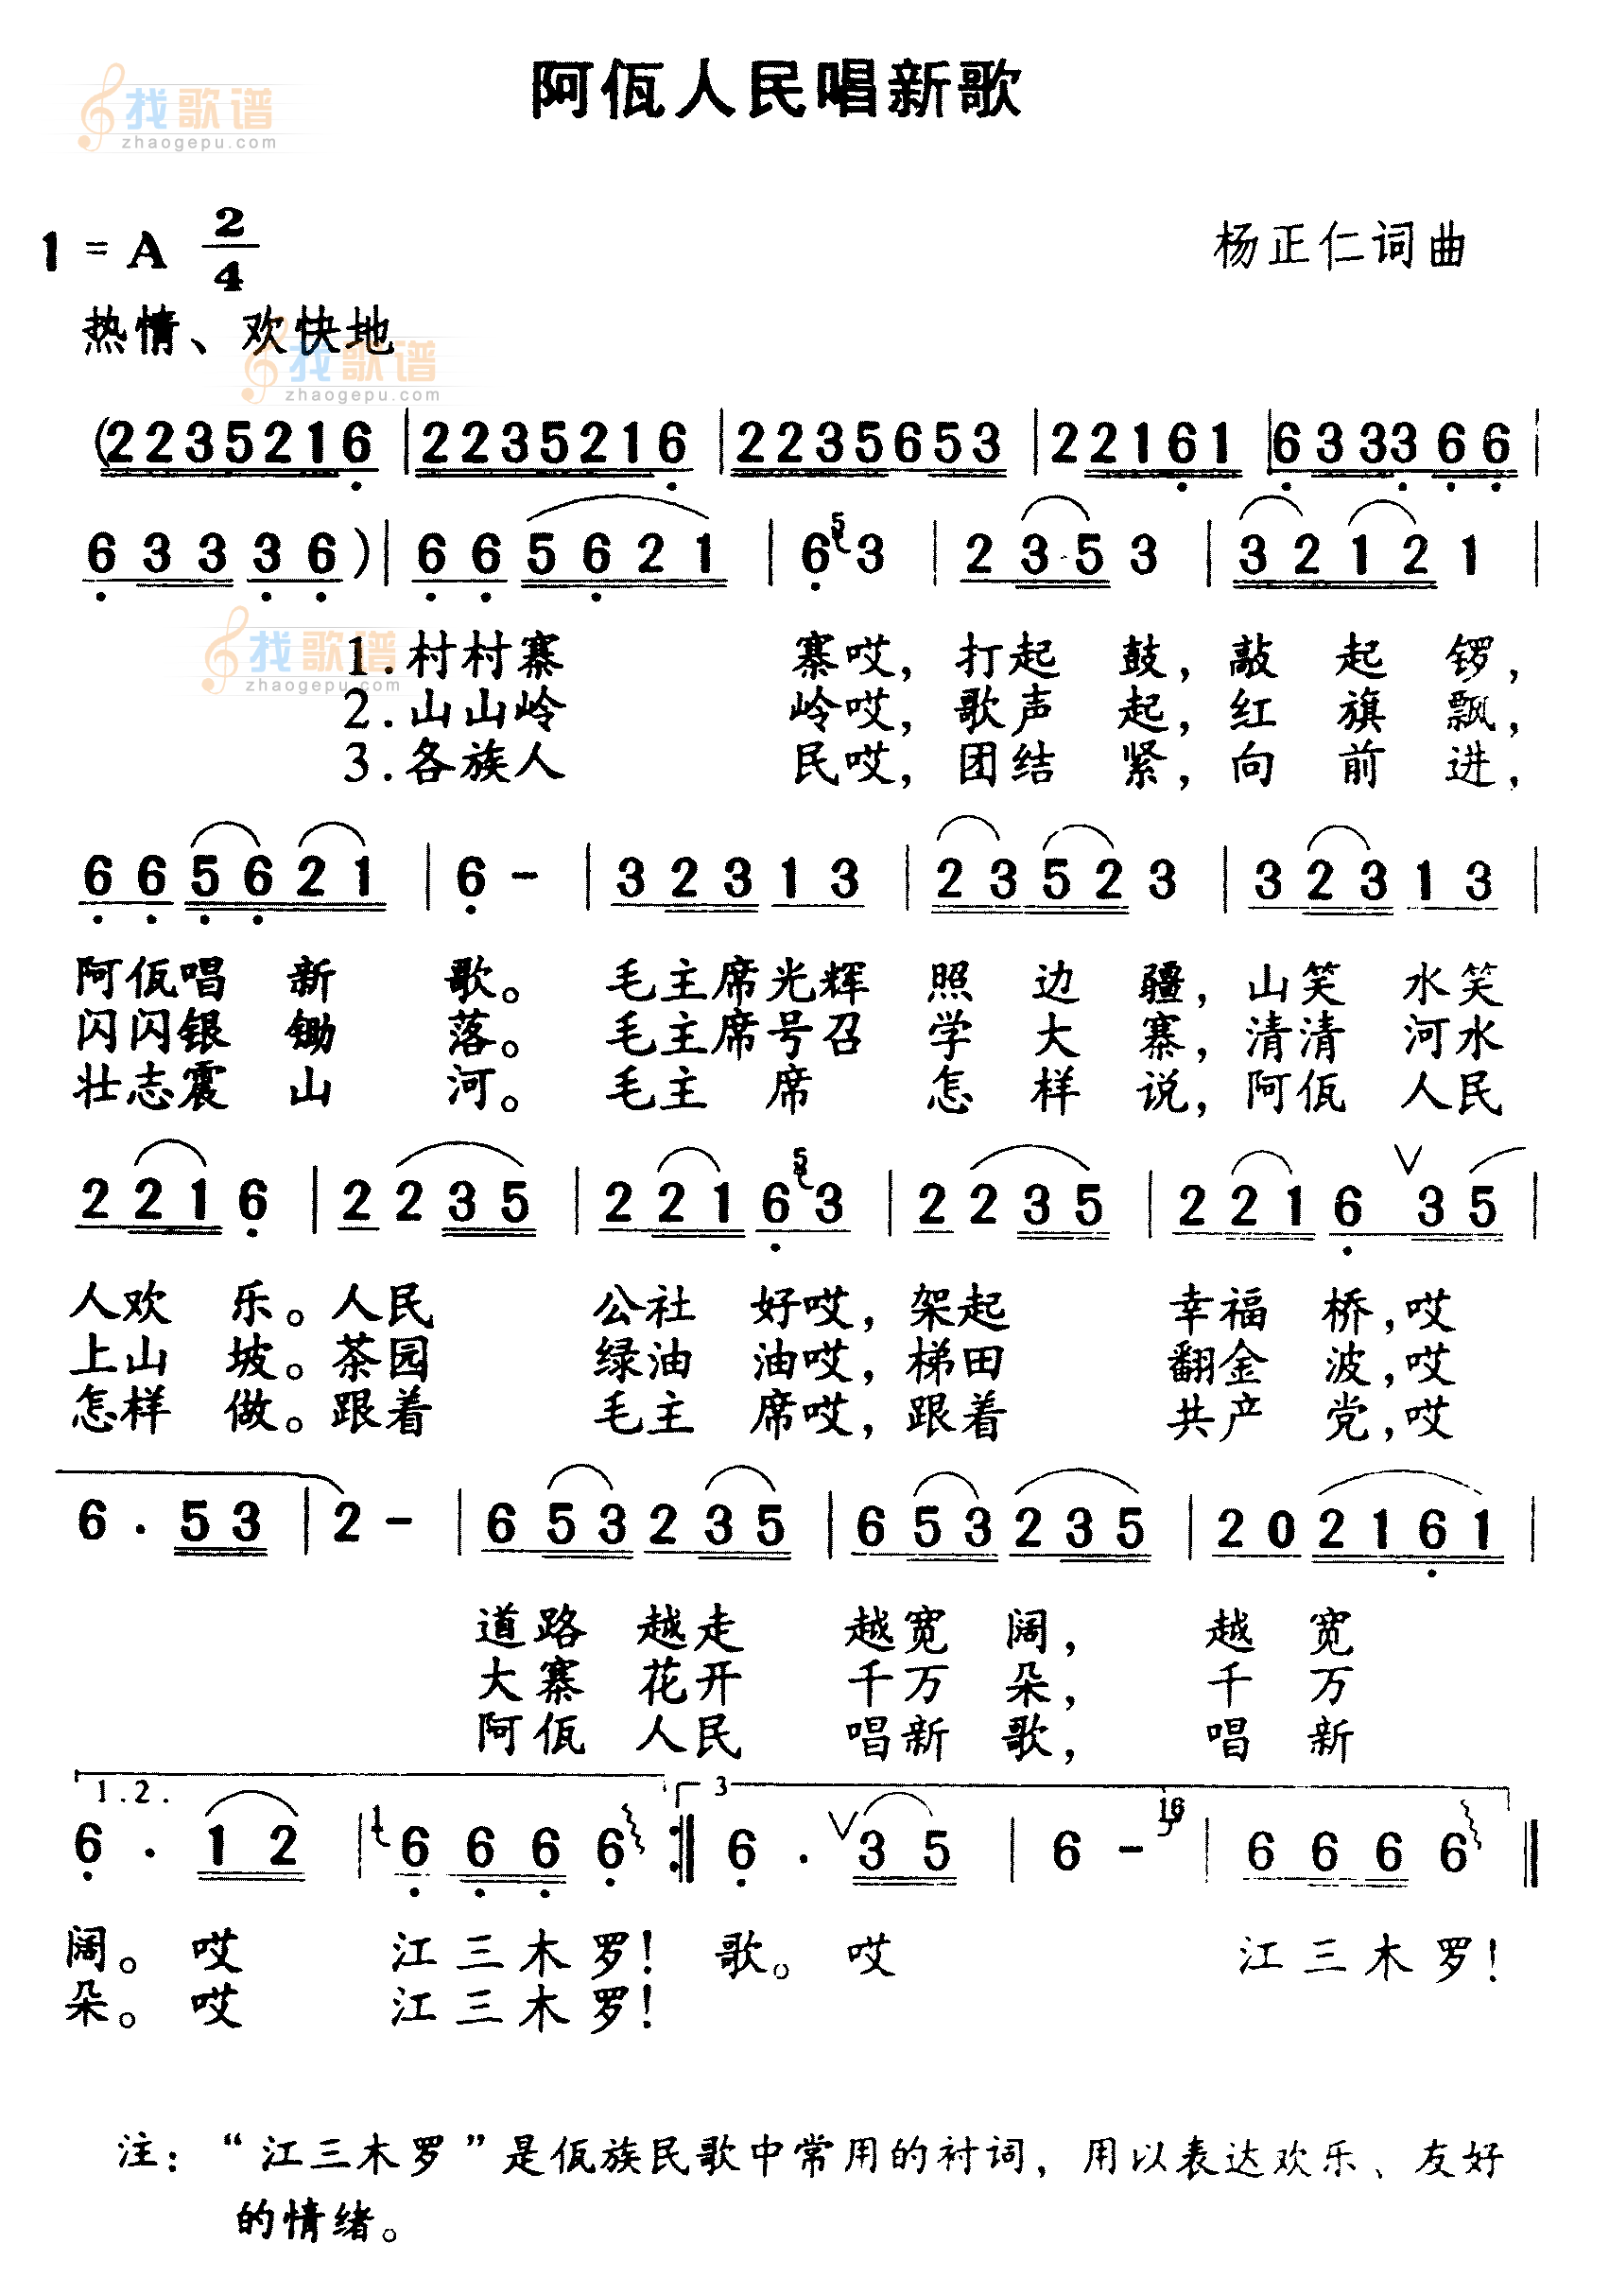 阿佤人民唱新歌
找歌谱
zhaogepu.com
1 = A 2/4
杨正仁词曲
热情、欢快地
找歌谱
zhaogepu.com
(2235216 | 2235216 | 2235653 | 22161 | 633366 |
63336) | 665621 | 6 5 3 | 2353 | 32121 |
找歌谱
zhaogepu.com
1.村村寨 寨哎，打起 鼓，敲 起 锣，
2.山山岭 岭哎，歌声 起，红 旗 飘，
3.各族人 民哎，团结 紧，向 前 进，
665621 | 6 - | 32313 | 23523 | 32313 |
阿佤唱 新 歌。 毛主席光辉 照 边 疆，山笑 水笑
闪闪银 锄 落。 毛主席号召 学 大 寨，清清 河水
壮志震 山 河。 毛主 席 怎 样 说，阿佤 人民
2216 | 2235 | 2216 5 3 | 2235 | 2216 ∨ 35 |
人欢 乐。人民 公社 好哎，架起 幸福 桥，哎
上山 坡。茶园 绿油 油哎，梯田 翻金 波，哎
怎样 做。跟着 毛主 席哎，跟着 共产 党，哎
6 . 53 | 2 - | 653235 | 653235 | 202161 |
道路 越走 越宽 阔， 越 宽
大寨 花开 千万 朵， 千 万
阿佤 人民 唱新 歌， 唱 新
1.2. 3
6 . 12 | 1 6666 :‖ 6 . ∨ 35 | 6 - 16 | 6666 ‖
阔。 哎 江三木罗！ 歌。 哎 江三木罗！
朵。 哎 江三木罗！
注：“江三木罗”是佤族民歌中常用的衬词，用以表达欢乐、友好
的情绪。